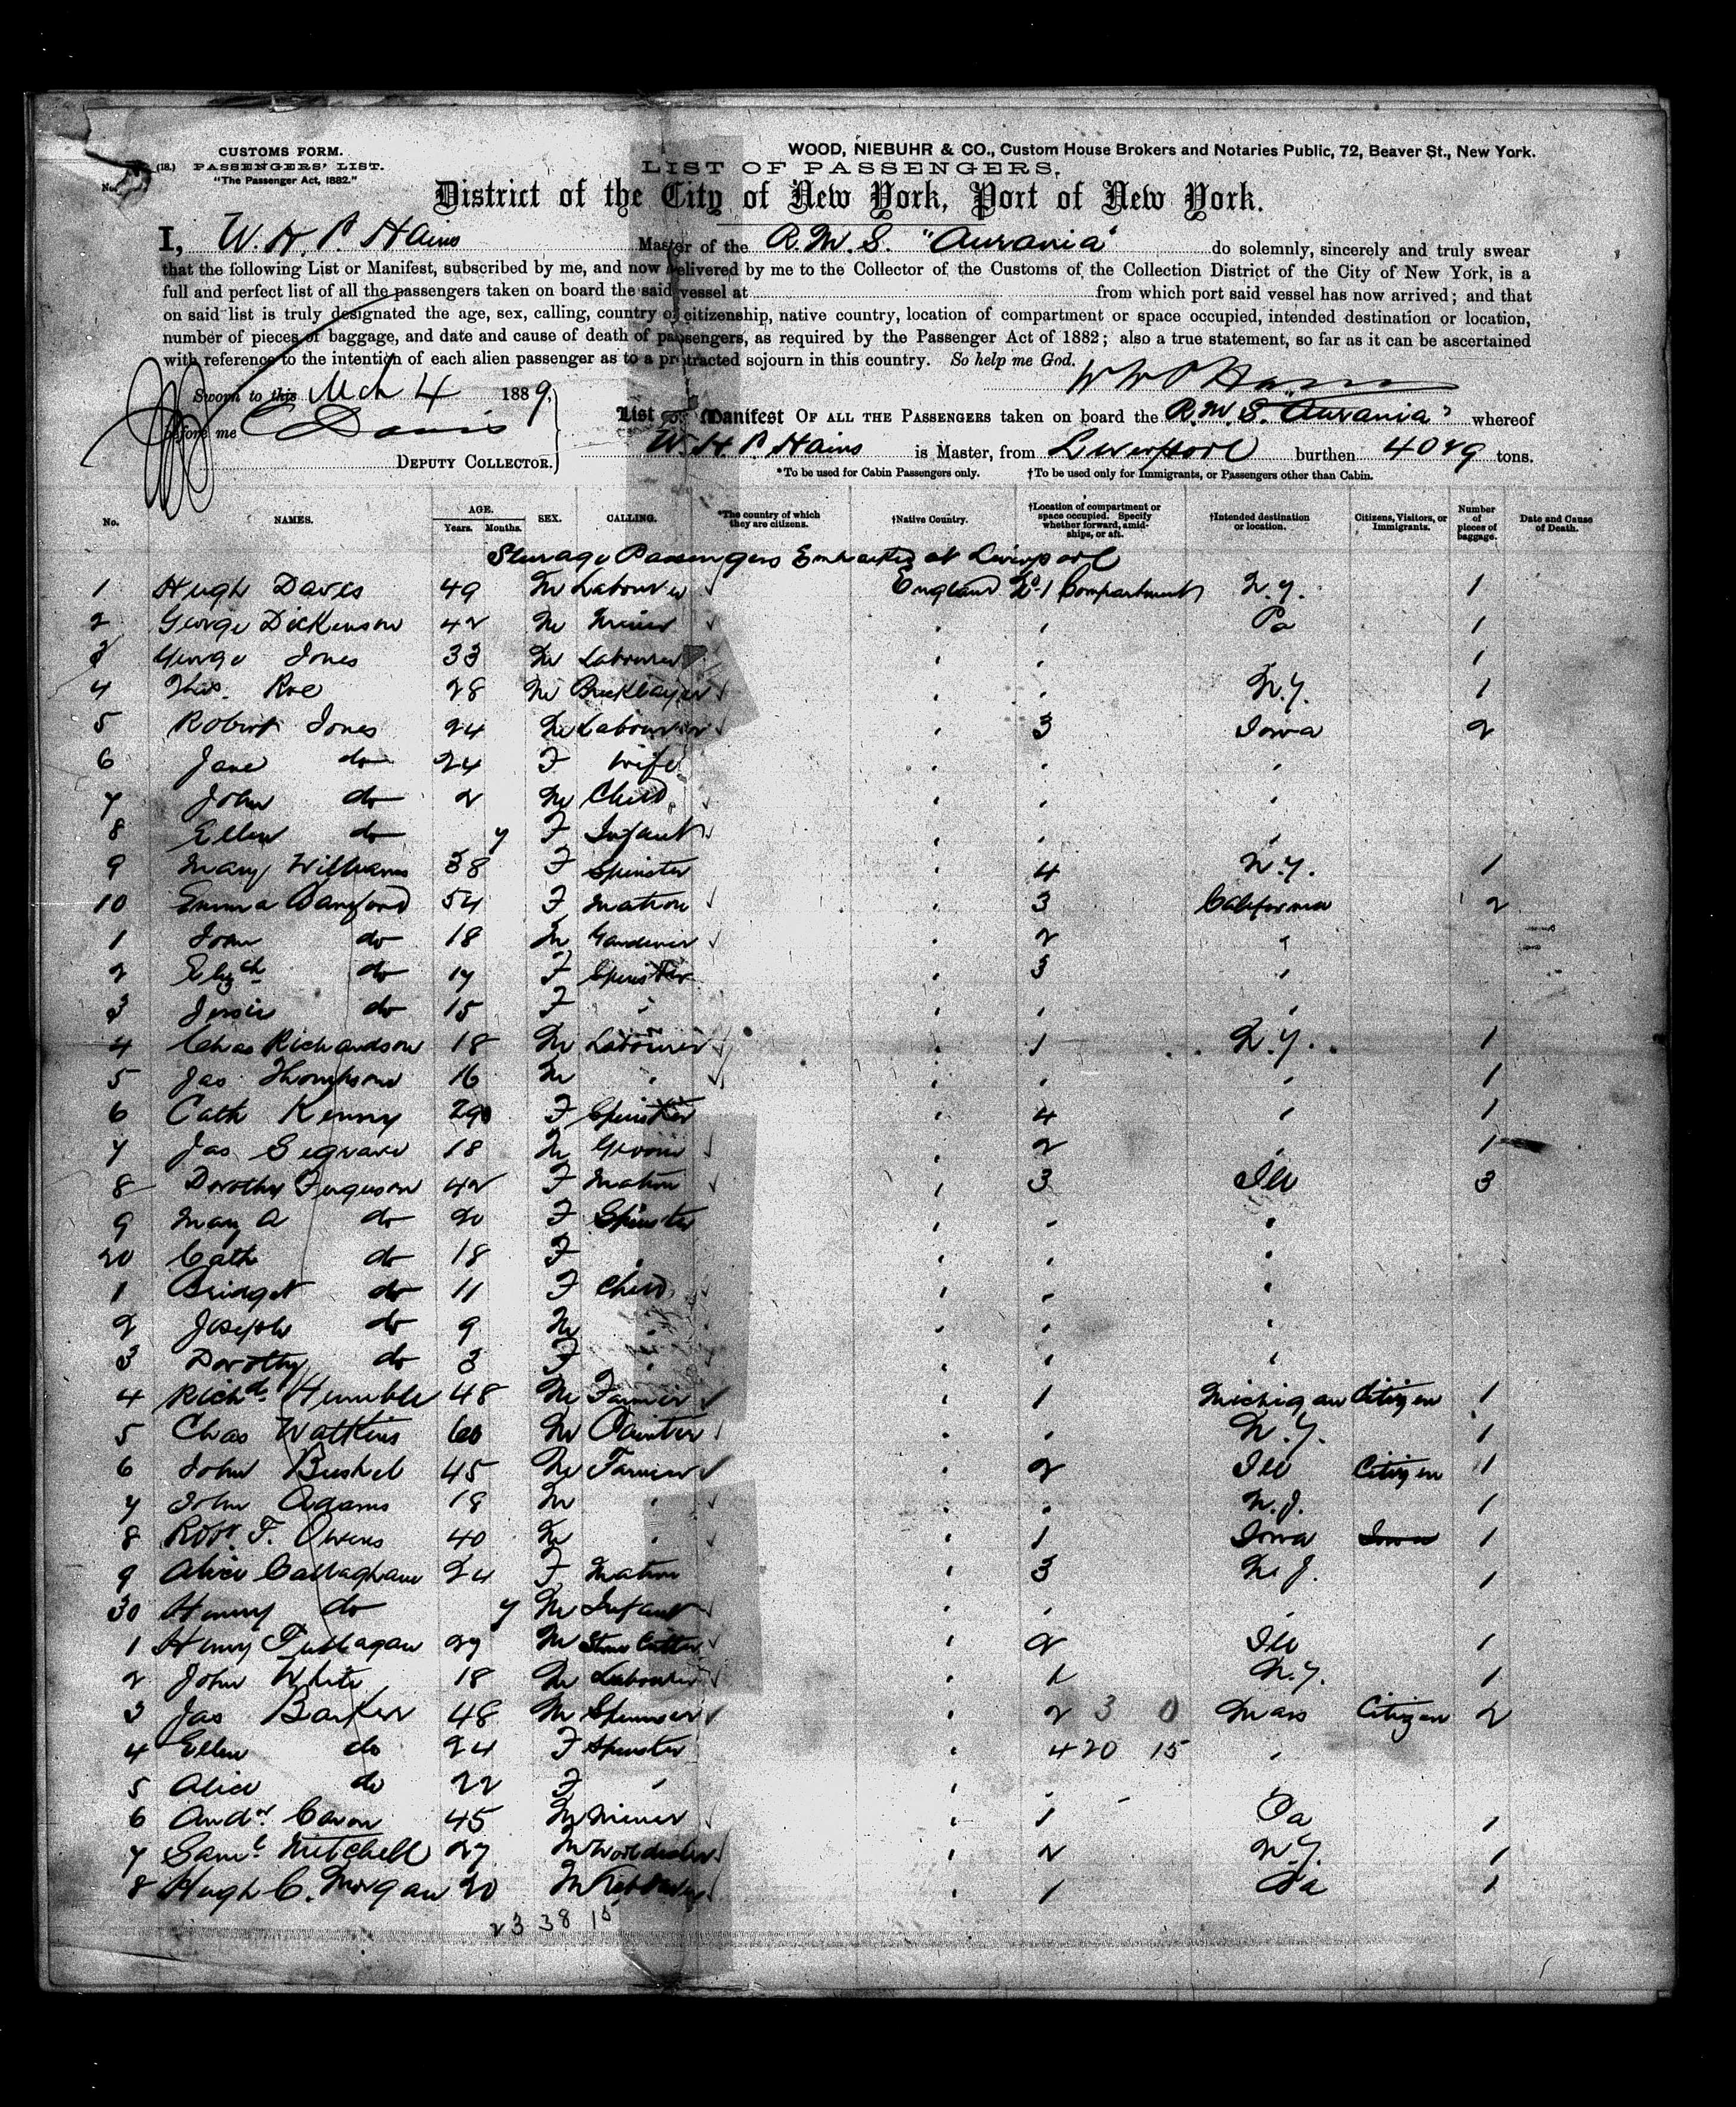 CUSTOMS FORM.
WOOD, NIEBUHR & CO., Custom House Brokers and Notaries Public, 72, Beaver St., New York.
(18.) PASSENGERS' LIST.
LIST OF PASSENGERS,
No.
"The Passenger Act, 1882."
District of the City of New York, Port of New York.
I, W. H. P. Hains Master of the R.M.S. "Aurania" do solemnly, sincerely and truly swear
that the following List or Manifest, subscribed by me, and now delivered by me to the Collector of the Customs of the Collection District of the City of New York, is a
full and perfect list of all the passengers taken on board the said vessel at from which port said vessel has now arrived; and that
on said list is truly designated the age, sex, calling, country of citizenship, native country, location of compartment or space occupied, intended destination or location,
number of pieces of baggage, and date and cause of death of passengers, as required by the Passenger Act of 1882; also a true statement, so far as it can be ascertained
with reference to the intention of each alien passenger as to a protracted sojourn in this country. So help me God.
W H P Hains
Sworn to this Mch 4 1889,
before me C Davis
DEPUTY COLLECTOR.
List or Manifest OF ALL THE PASSENGERS taken on board the R.M.S. "Aurania" whereof
W. H. P. Hains is Master, from Liverpool burthen 4029 tons.
*To be used for Cabin Passengers only. †To be used only for Immigrants, or Passengers other than Cabin.
No. NAMES. AGE. Years. Months. SEX. CALLING. *The country of which they are citizens. †Native Country. †Location of compartment or space occupied. Specify whether forward, amidships, or aft. †Intended destination or location. Citizens, Visitors, or Immigrants. Number of pieces of baggage. Date and Cause of Death.
Steerage Passengers Embarked at Liverpool
1 Hugh Davies 49 M Labourer England No 1 Compartment N.Y. 1
2 George Dickenson 42 M Miner " " Pa 1
3 George Jones 33 M Labourer " " 1
4 Thos. Roe 28 M Bricklayer " " N.Y. 1
5 Robert Jones 24 M Labourer " 3 Iowa 2
6 Jane do 24 F Wife " " "
7 John do 2 M Child " " "
8 Ellen do 7 F Infant " " "
9 Mary Williams 38 F Spinster " 4 N.Y. 1
10 Emma Bamford 54 F Matron " 3 California 2
1 John do 18 M Gardener " 2 "
2 Elizth do 17 F Spinster " 3 "
3 Jessie do 15 F " " " "
4 Chas Richardson 18 M Labourer " 1 N.Y. 1
5 Jas Thompson 16 M " " " " 1
6 Cath Kenny 20 F Spinster " 4 " 1
7 Jas Segrave 18 M Groom " 2 " 1
8 Dorothy Ferguson 42 F Matron " 3 Ill 3
9 Mary A do 20 F Spinster " " "
20 Cath do 18 F " " " "
1 Bridget do 11 F Child " " "
2 Joseph do 9 M " " " "
3 Dorothy do 3 F " " " "
4 Richd Humble 48 M Farmer " 1 Michigan Citizen 1
5 Chas Watkins 60 M Painter " " N.Y. 1
6 John Bushel 45 M Farmer " 2 Ill Citizen 1
7 John Adams 18 M " " " N.J. 1
8 Robt. F. Owens 40 M " " 1 Iowa Iowa 1
9 Alice Callaghan 24 F Matron " 3 N.J. 1
30 Henry do 7 M Infant " " "
1 Henry 27 M Stone Cutter " 2 Ill 1
2 John White 18 M Labourer " 1 N.Y. 1
3 Jas Barker 48 M " 2 3 0 Mass Citizen 2
4 Ellen do 24 F Spinster " 4 20 15 "
5 Alice do 22 F " " "
6 Andw. 45 M Miner " 1 Pa 1
7 Saml. Mitchell 27 M " 2 N.Y. 1
8 Hugh C. Morgan 20 M " 1 Pa 1
23 38 15